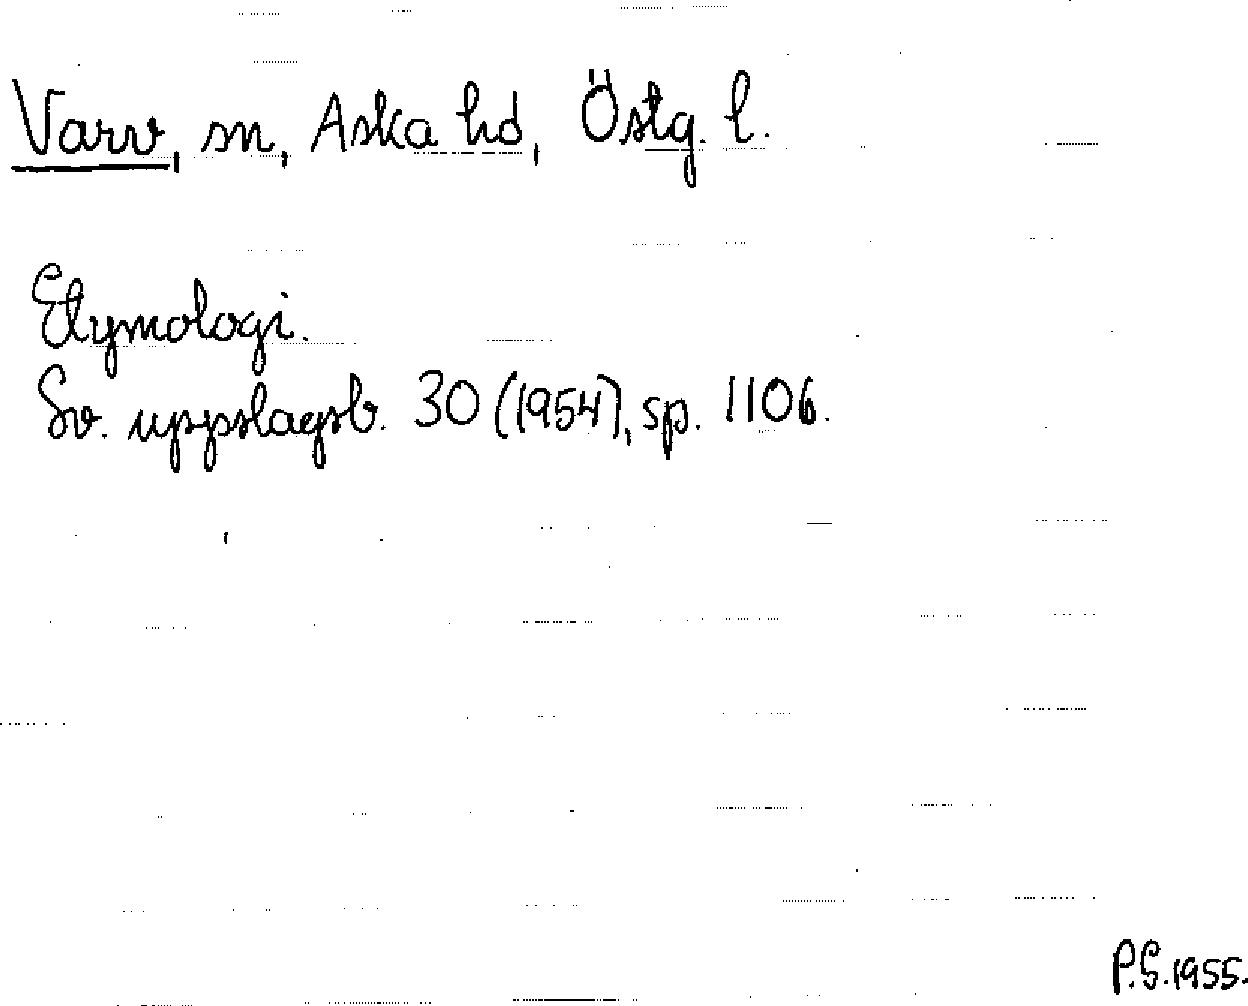 Varv, sn, Aska hd, Östg. l.
Etymologi.
Sv. uppslagsb. 30 (1954), sp. 1106.
P.G. 1955.